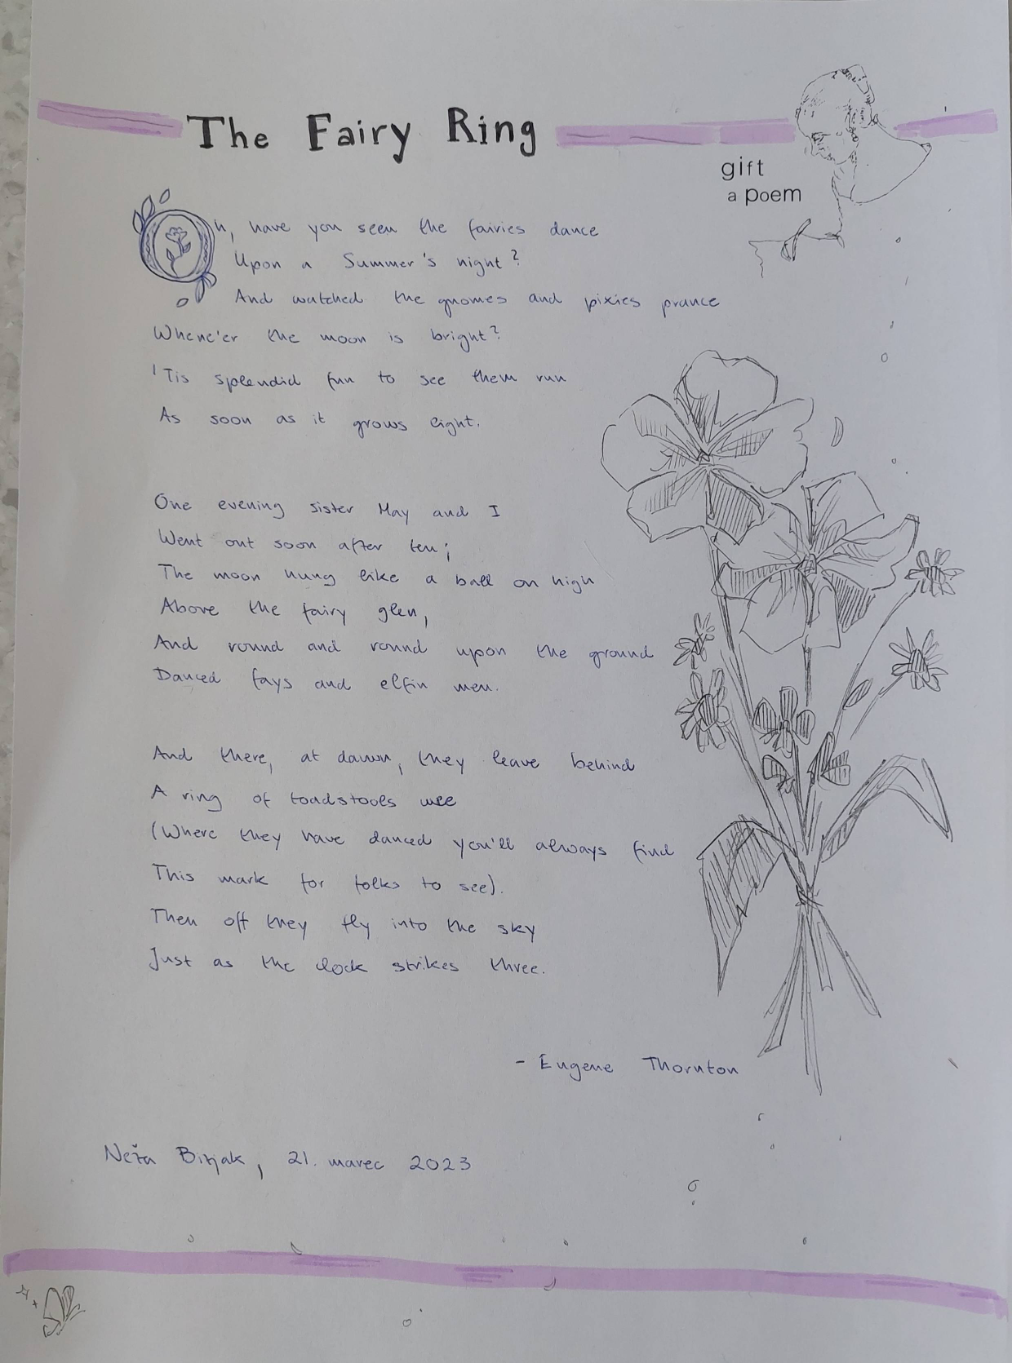 The Fairy Ring
gift
a poem
Oh, have you seen the fairies dance
Upon a Summer's night?
And watched the gnomes and pixies prance
Whene'er the moon is bright?
'Tis splendid fun to see them run
As soon as it grows light.
One evening sister May and I
Went out soon after ten;
The moon hung like a ball on high
Above the fairy glen,
And round and round upon the ground
Danced fays and elfin men.
And there, at dawn, they leave behind
A ring of toadstools wee
(Where they have danced you'll always find
This mark for folks to see).
Then off they fly into the sky
Just as the clock strikes three.
- Eugene Thornton
Neža Bizjak, 21. marec 2023